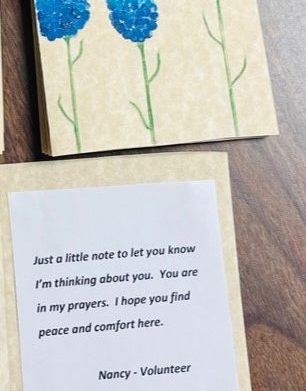 Just a little note to let you know
I'm thinking about you. You are
in my prayers. I hope you find
peace and comfort here.
Nancy - Volunteer